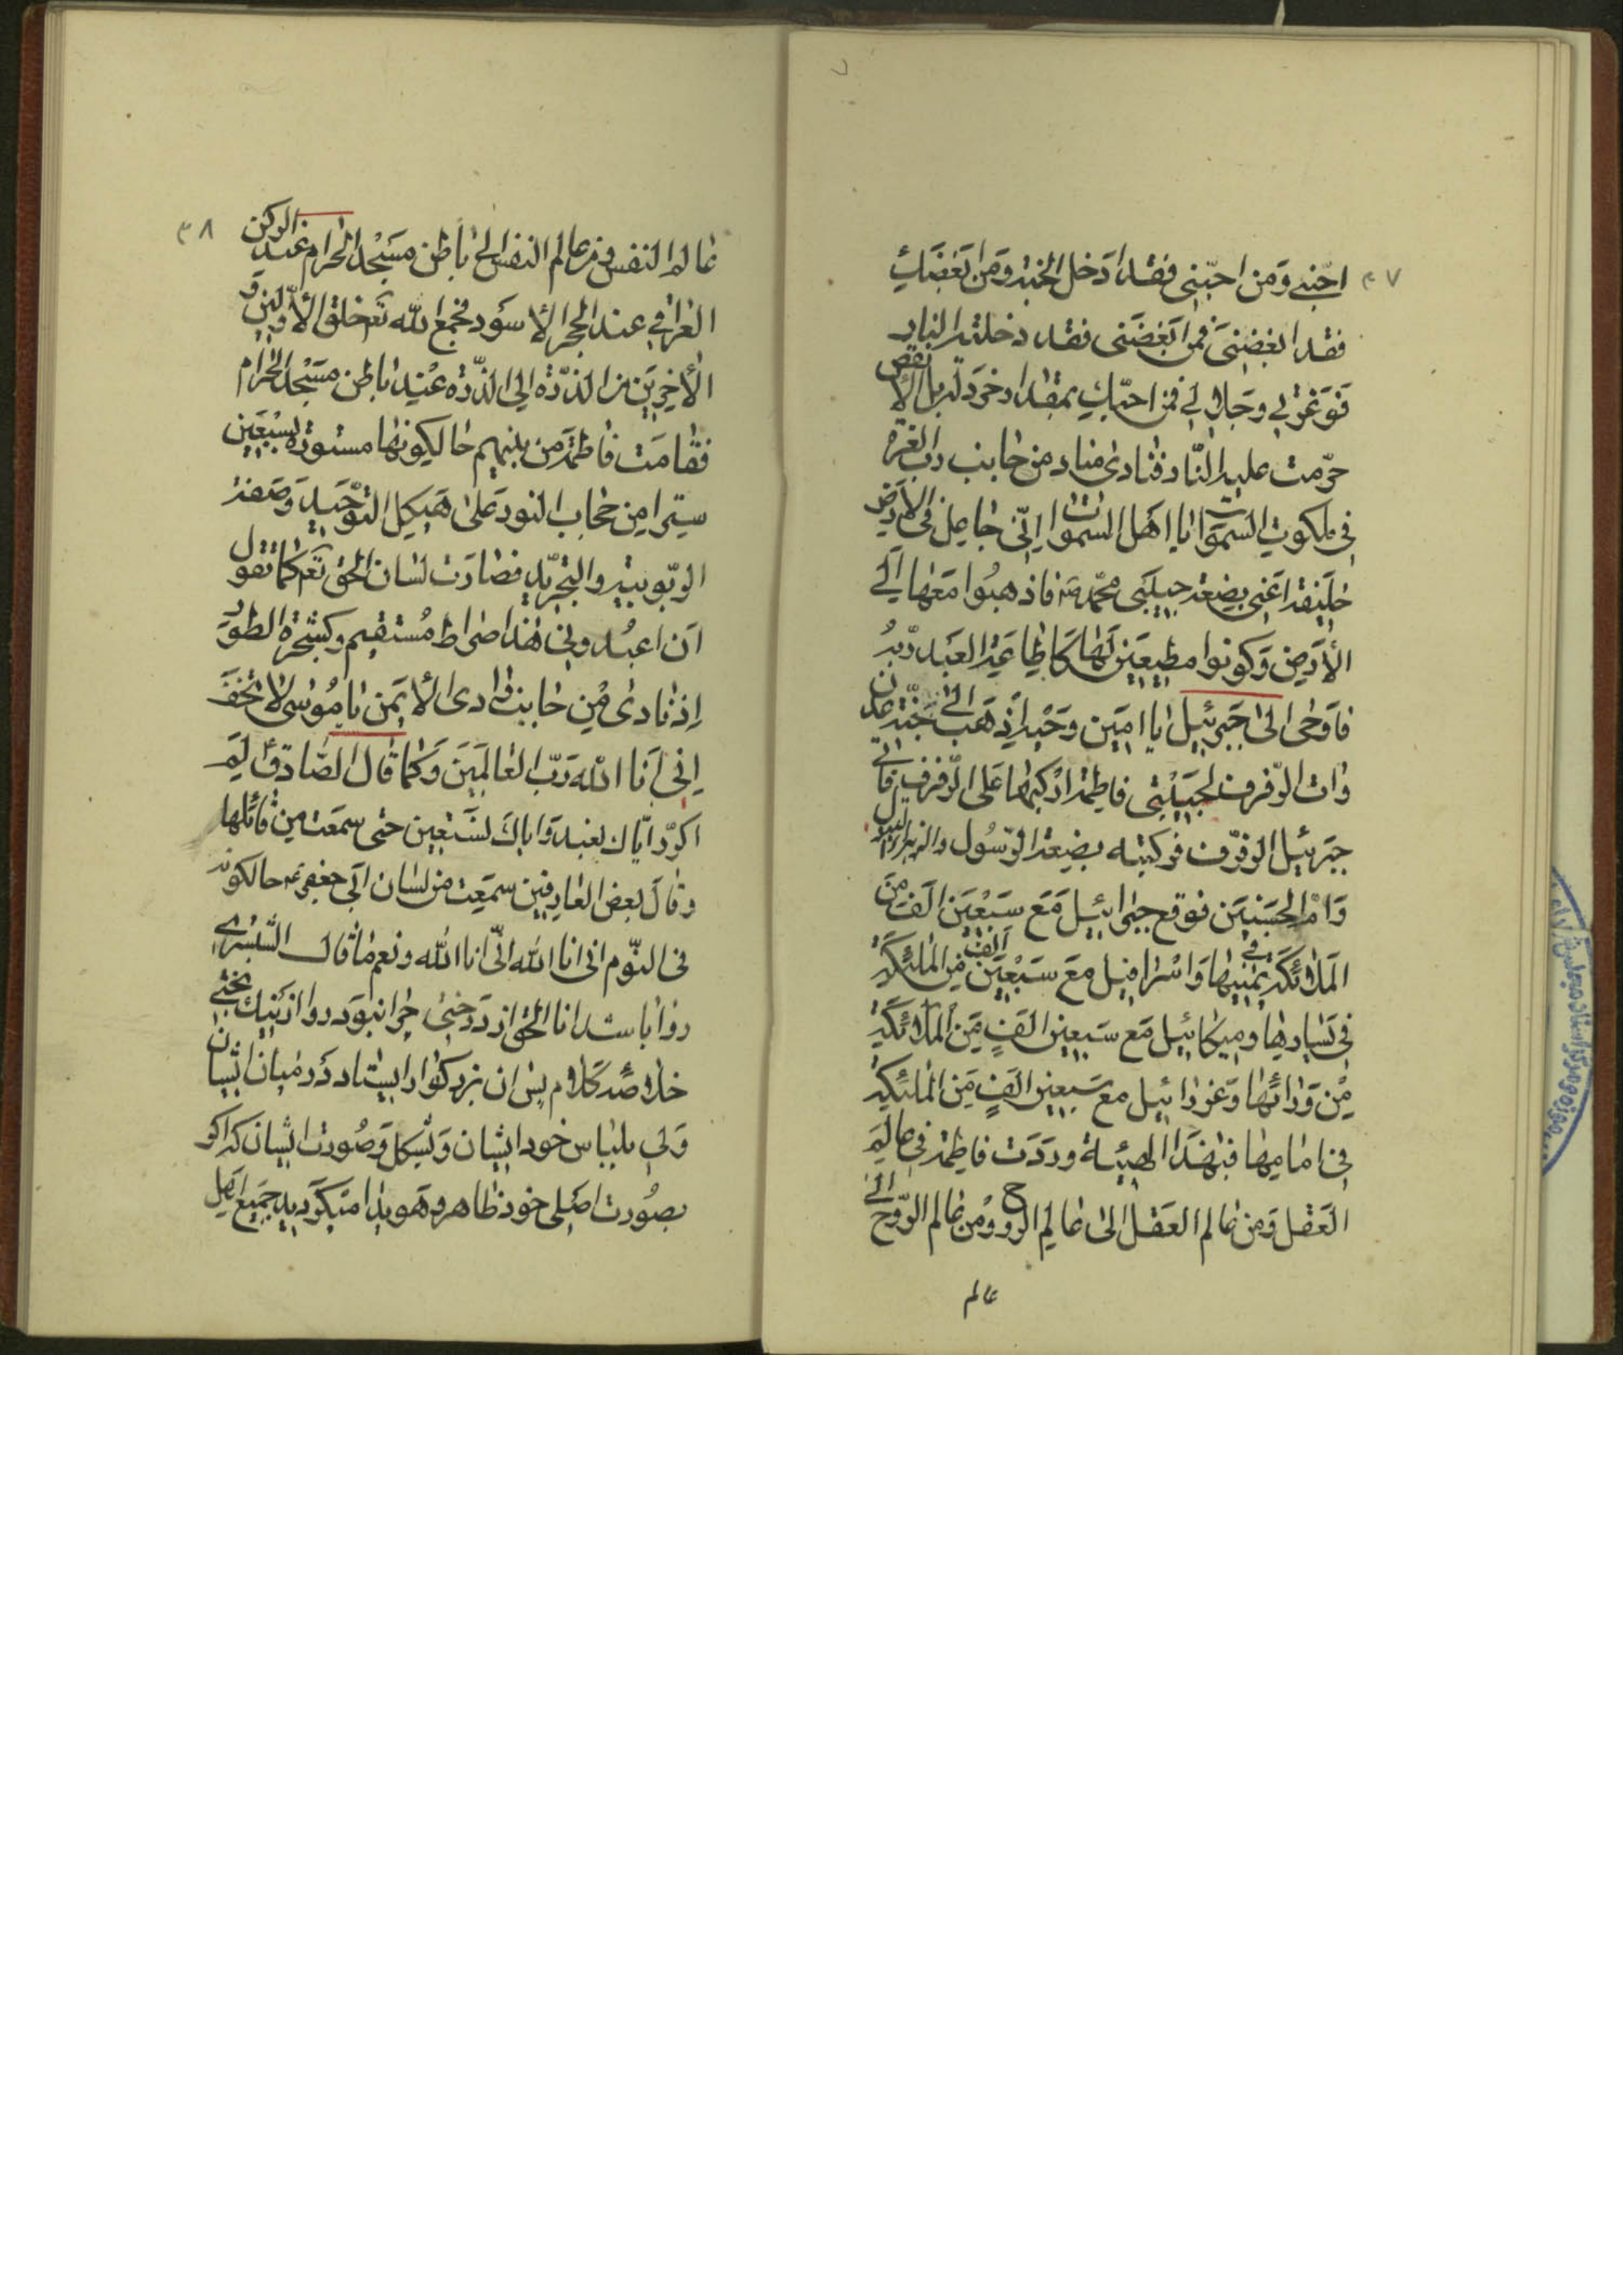 ٣٧
احبّنی وَمن احبّنی فقد ادَخل الجنة وَمن ابَغضَكِ
فقد ابغضنیَ فمن ابَغضَنی فقد دخلته النار
فَوَعزتی وجَلالی فمن احبّكِ بمقدار خردلة بل الأنقص
حرّمت علیه النّار فنادی مناد من جانب رب العزة
فی ملكوت السَموات یا اهَل السموات انّی جاعل فی الأرض
خلیفة اعَنی بضعة حبیبَی محمّد ص فاذهبُوا مَعَها الَی
الأرَض وَكونوا مطیعَین لَها كَاطاعَة العَبد ربه
فاَوحَی الیَ جَبرئیل یا امَین وحَید اذِهَب الی جنّة عدن
وات الرّفرف لحَبیَبتی فاطمة اركبها عَلی الرّفرف فاتی
جبَرئیل الرفرف فركبته بضعة الرّسُول والزهراء البتول
وَامّ الحسَنیَن فوقع جبرائیل مَعَ سَبْعَین الَف من
المَلائكَة فی یمینها وَاسْرافیل معَ سَبْعَین الَف من المَلئكة
فی یَسارها ومیكائیل مَع سَبعین الَفٍ مَن الَملائكَة
مِنْ وَرائها وَعَزرائیل مع سَبعین الَفٍ مَن المَلئكة
فی امامها فبَهذا الهیئة وردَت فاطمة فی عالم
العَقل وَمن عالم العَقل الیَ عالم الروح وَمن عالم الرّوح الی
عالم
٣٨
عالم النفس ومن عالم النفس الی باطن مسَجْد الحرام عند الركن
العَراقی عند الحجر الأسوَد فجمع الله تعَ خلق الأوّلین و
الأخرین من الذرّة الی الذرّة عْند باطن مسَجْد الحرام
فقامَت فاطمَة من بینهم حالكونها مستورة بسَبْعین
سترا من حجاب النور عَلی هَیكل التوحَید وَصفة
الربّوبیة والتجرّید فصارَت لسان الحق تعَ كما تقول
اَن اعبُدونی هَذا صَراط مُستقیم وكشجَرة الطور
اِذ نادی مْن جانب وادی الأیَمن یا مُوسی لا تخَف
اِنی انَا الله رَبّ العالمَین وَكما قال الصّادق ع لمَ
اكرّر ایّاك نعبد وَایاكَ نستَعین حتی سمعَت من قائلها
وقالَ بعض العارفین سمعَت من لسان ابَی جعفر ع حالكونه
فی النّوم انی انا الله انّی انا الله ونعم ما قال الشّبسُتری
روا باشد انا الحق از درَختی چرا نبوَد روا از نیك بختی
خلاصَه كَلام پس ان بزركوار ایستاد دَر میان ایشان
وَلی بلباس خود ایشان وَبشكل وَصُورت ایشان كه اكر
بصُورت اصَلی خود ظاهر وهَویدا میكرَدید جَمیع اهَل